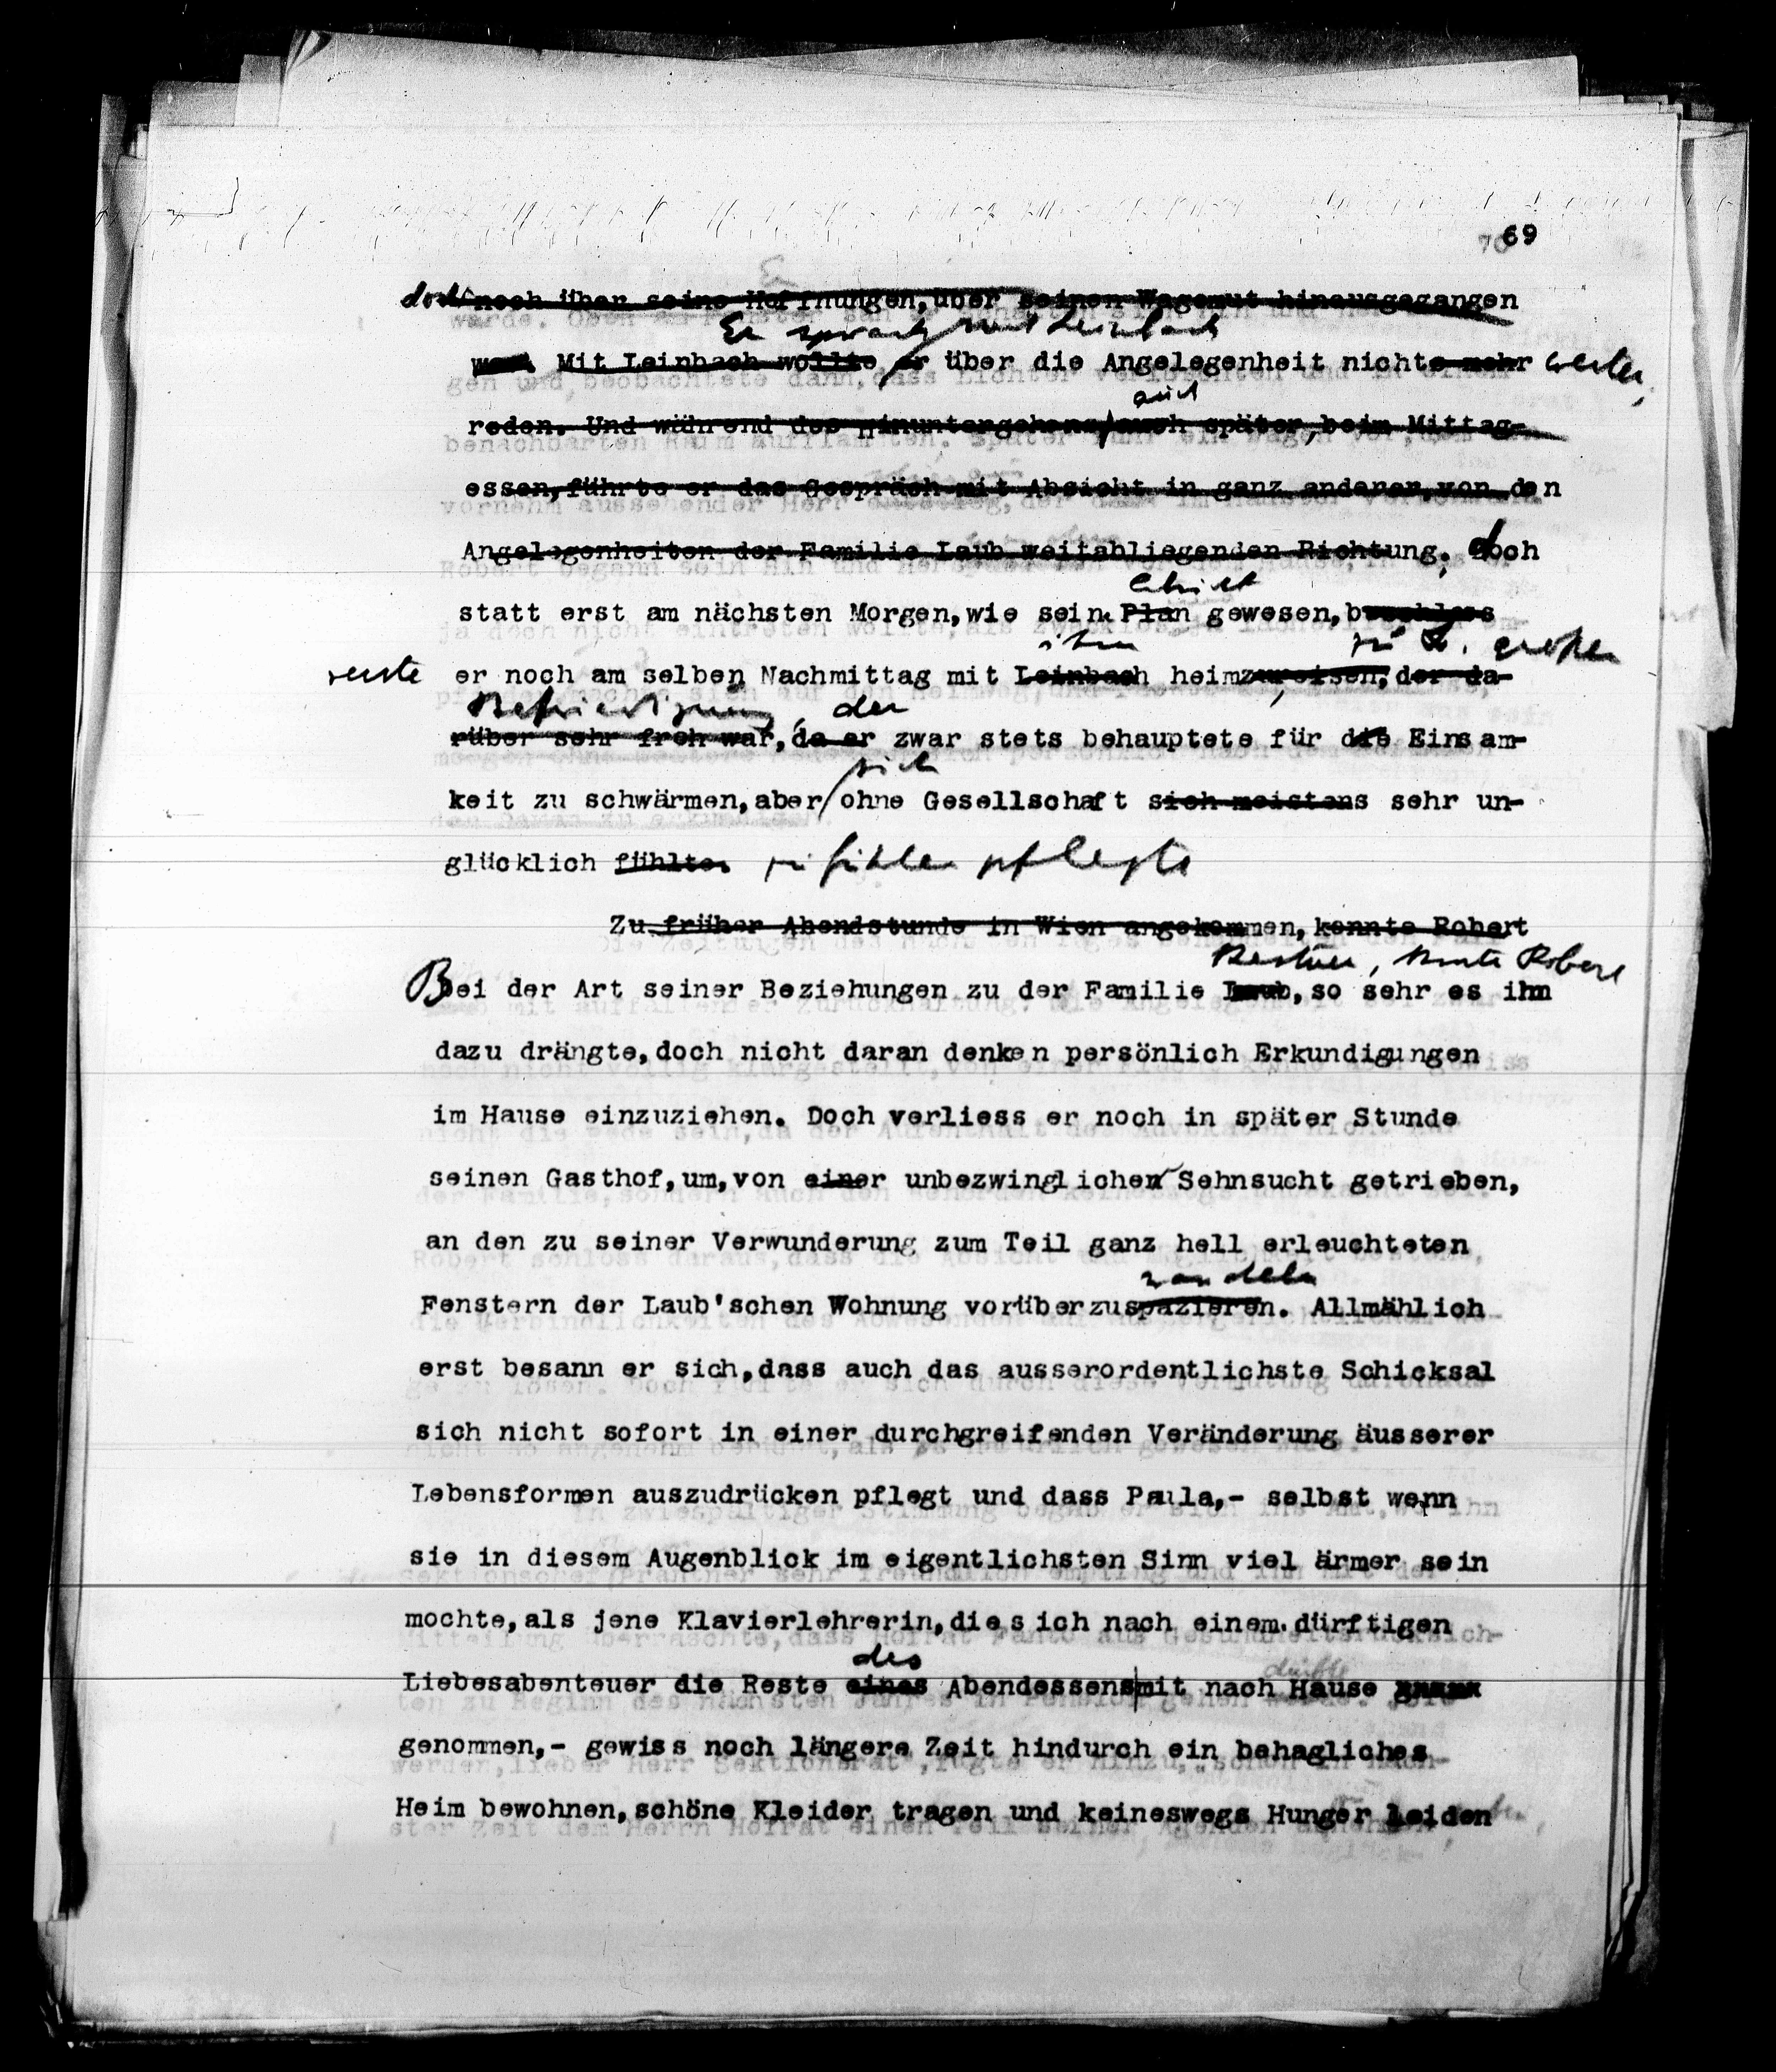 69
doch noch über seine Hoffnungen,über seinen Wagemut hinausgegangen
Er sprach mit Leinbach
war. Mit Leinbach wollte er über die Angelegenheit nichts mehr weiter,
auch
reden. Und während des Hinuntergehens, auch später,beim Mittag-
essen,führte er das Gespräch mit Absicht in ganz anderer,von den
Angelegenheiten der Familie Laub weitabliegenden Richtung. doch
Absicht
statt erst am nächsten Morgen,wie sein Plan gewesen,beschloss
ihm zu L. großer
reiste er noch am selben Nachmittag mit Leinbach heimzureisen,der da-
Befriedigung, der
rüber sehr froh war,da er zwar stets behauptete für die Einsam-
sich
keit zu schwärmen,aber ohne Gesellschaft sich meistens sehr un-
glücklich fühlte. zu fühlen pflegte
Zu früher Abendstunde in Wien angekommen, konnte Robert
konnte Robert
Bei der Art seiner Beziehungen zu der Familie Laub,so sehr es ihn
dazu drängte,doch nicht daran denken persönlich Erkundigungen
im Hause einzuziehen. Doch verliess er noch in später Stunde
seinen Gasthof,um,von einer unbezwinglichen Sehnsucht getrieben,
an den zu seiner Verwunderung zum Teil ganz hell erleuchteten
wandeln
Fenstern der Laub'schen Wohnung vorüberzuspazieren. Allmählich
erst besann er sich,dass auch das ausserordentlichste Schicksal
sich nicht sofort in einer durchgreifenden Veränderung äusserer
Lebensformen auszudrücken pflegt und dass Paula,- selbst wenn
sie in diesem Augenblick im eigentlichsten Sinn viel ärmer sein
mochte,als jene Klavierlehrerin,die sich nach einem dürftigen
des
Liebesabenteuer die Reste eines Abendessens mit nach Hause
genommen,- gewiss noch längere Zeit hindurch ein behagliches
Heim bewohnen,schöne Kleider tragen und keineswegs Hunger leiden